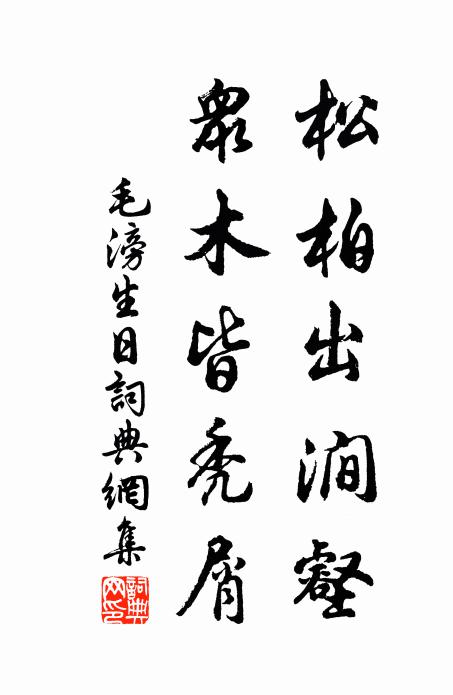 松柏出澗壑
衆木皆禿屑
毛滂生日詞典網集
詞典網印